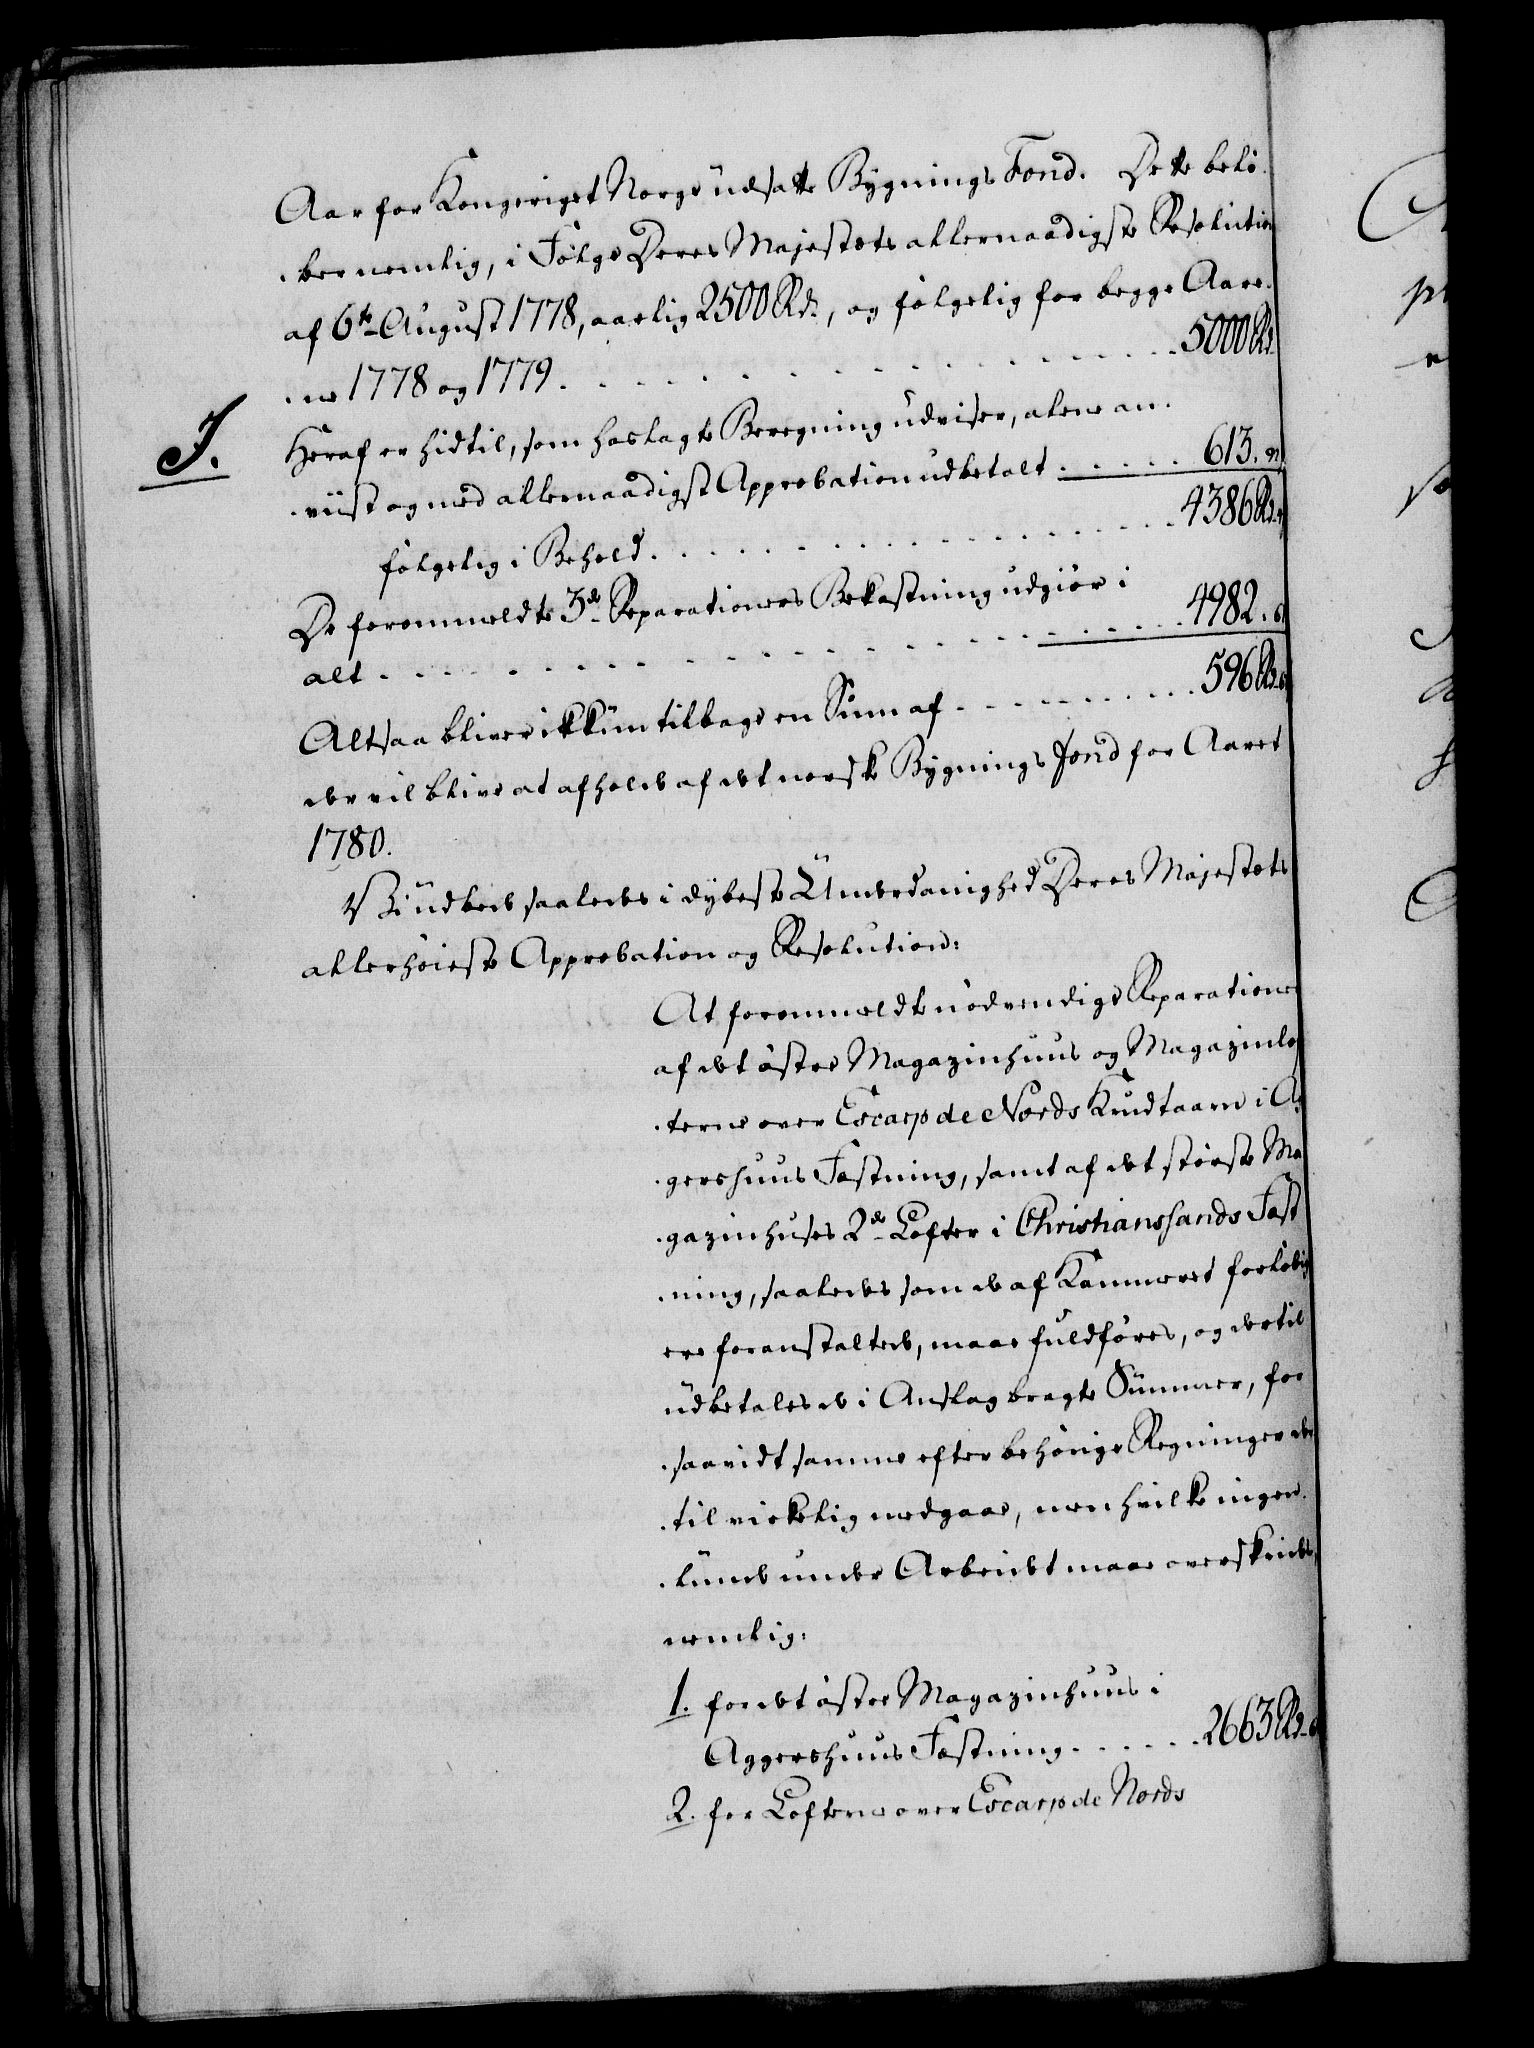 Aar for Kongeriget Norge udsatte Bygnings Fond. Dette belö-
-ber nemlig, i Fölge Deres Majestæts allernaadigste Resolution
af 6te August 1778, aarlig 2500 Rd., og fölgelig for begge Aare-
-ne 1778 og 1779 . . . . . . . . . . 5000 Rd.
J. Heraf er hidtil, som hoslagte Beregning udviser, alene an-
-viist og med allernaadigst Approbation udbetalt . . . . . 613.
fölgelig i Behold . . . . . . . . . . 4386 Rd.
De forommeldte 3de Reparationers Bekostning udgiör i
alt . . . . . . . . . . 4982.
Altsaa bliver ikkun tilbage en Sum af . . . . . . . . . 596 Rd.
der vil blive at afholde af det norske Bygnings Fond for Aaret
1780.
Vi udbede saaledes i dybeste Underdanighed Deres Majestæts
allerhöieste Approbation og Resolution:
At forommeldte nödvendige Reparationer
af det östre Magazinhuus og Magazinlof
-terne over Escarp de Nords Krudtaarn i Ag
-gershuus Fæstning, samt af det störste Ma
-gazinhuses 2de Lofter i Christianssands Fæst
-ning, saaledes som de af Kammeret forlöbig
ere foranstaltede, maae fuldföres, og dertil
udbetales de i Anslag bragte Summer, for
-saavidt samme efter behörige Regninger der
-til virkelig medgaae, men hvilke ingen-
-lunde under Arbeidet maae overskrides,
nemlig:
1. for det östre Magazinhuus i
Aggershuus Fæstning . . . . . . 2663 Rd.
2. for Lofterne over Escarp de Nords